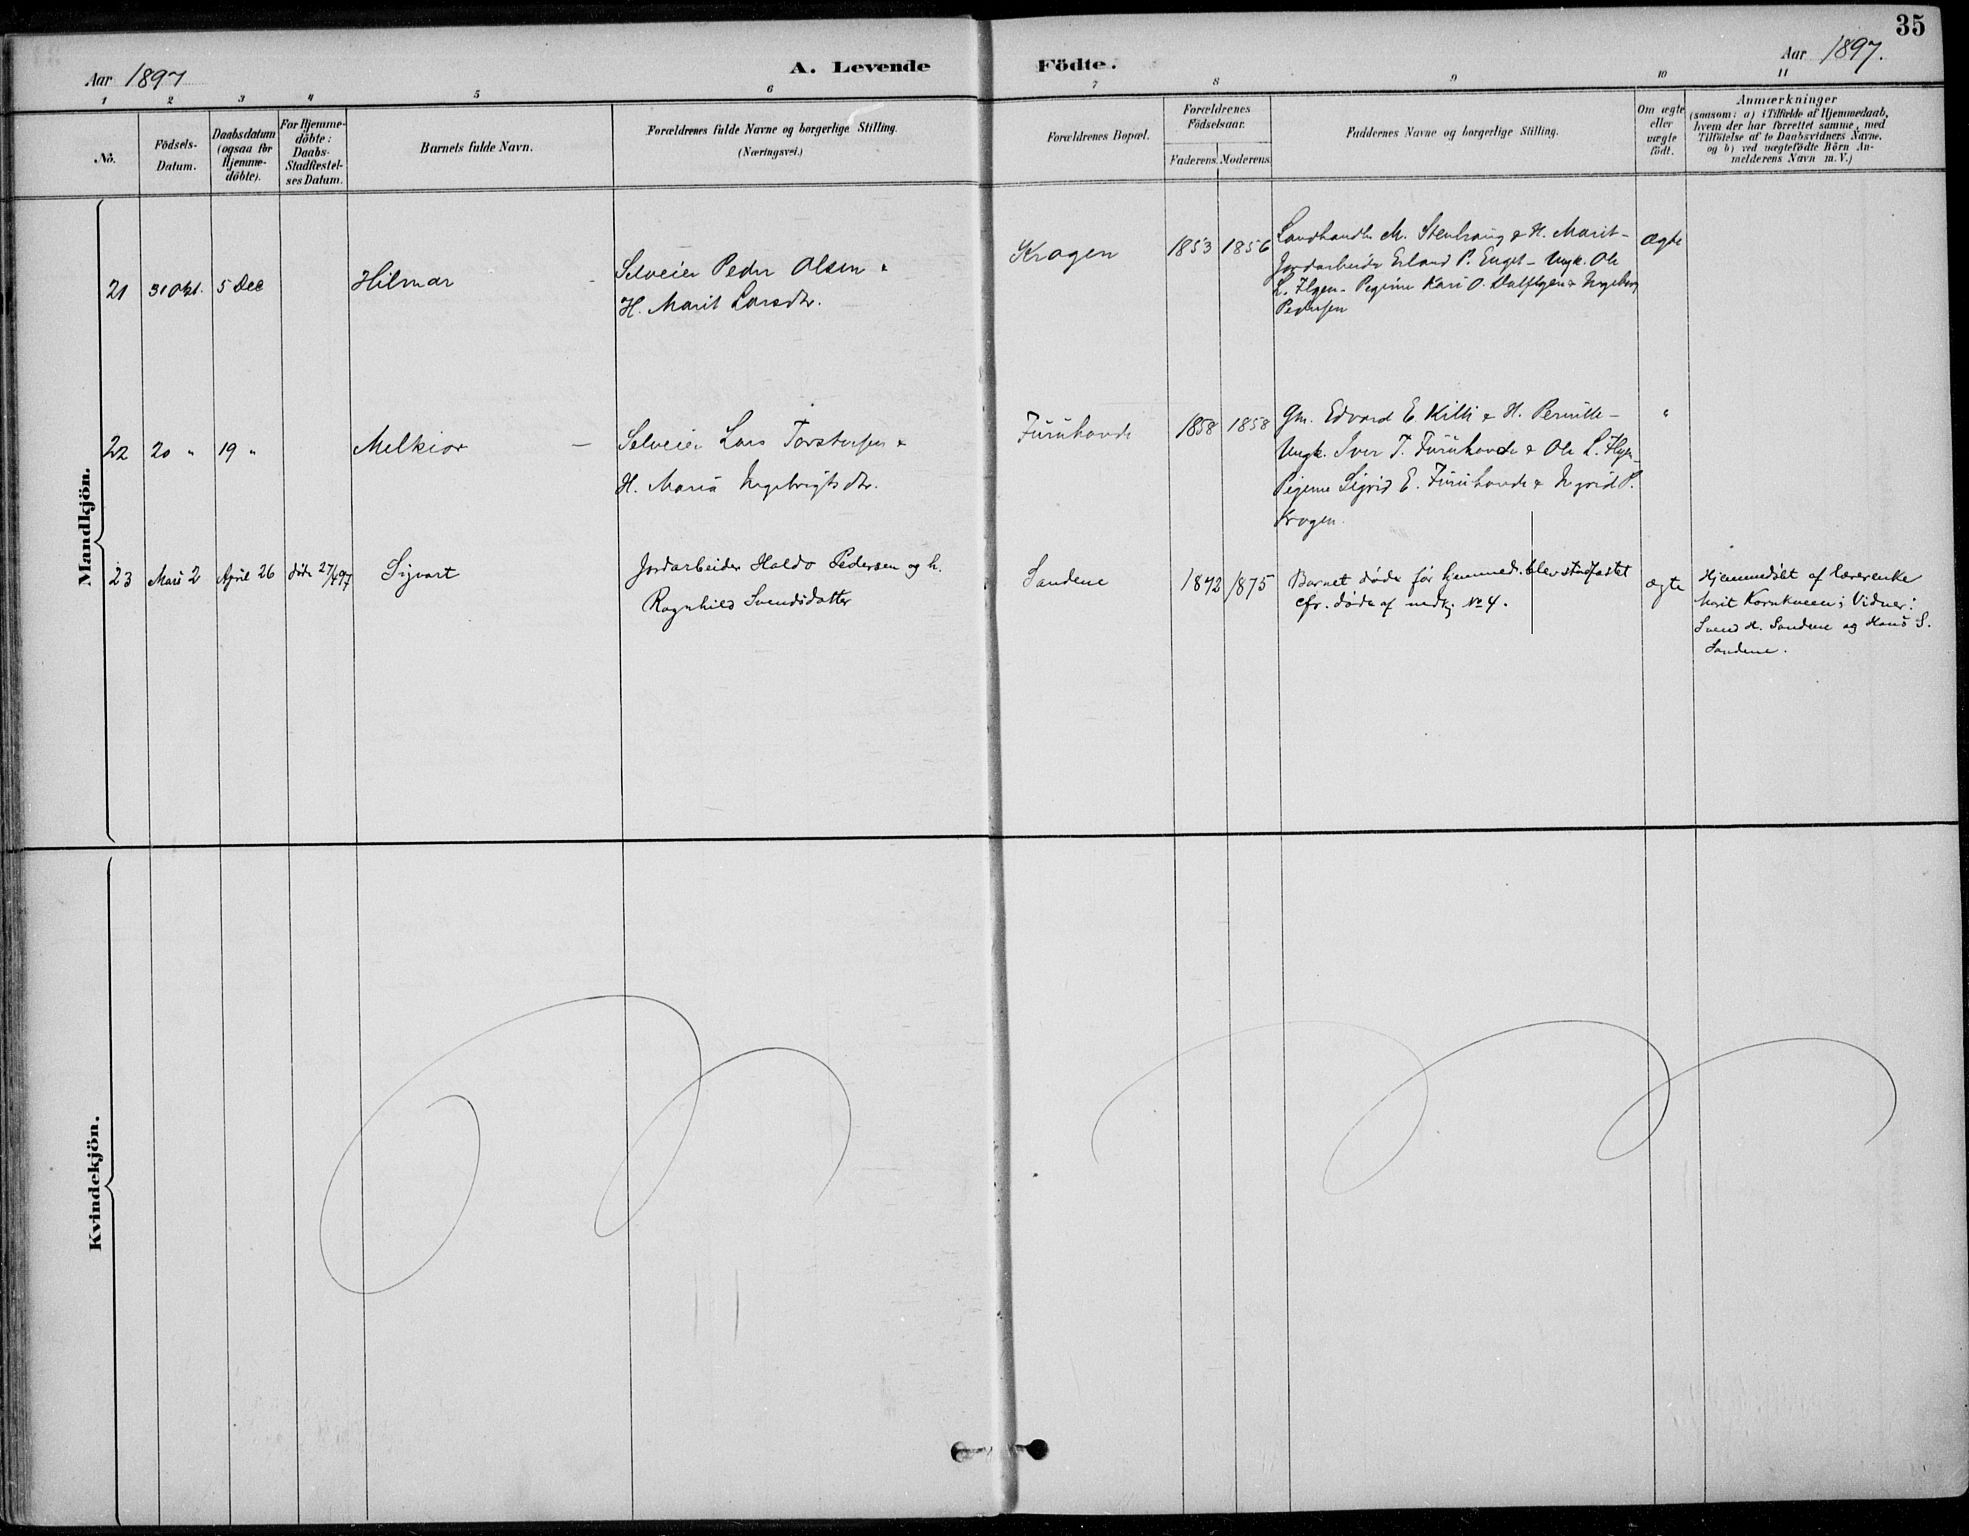 35
Aar 1897
A. Levende Födte.
Aar 1897.
1 2 3 4 5 6 7 8 9 10 11
No.
Födsels-
Datum.
Daabsdatum
(ogsaa for
Hjemme-
döbte).
For Hjemme-
döbte:
Daabs-
Stadfæstel-
ses Datum.
Barnets fulde Navn.
Forældrenes fulde Navne og borgerlige Stilling.
(Næringsvei.)
Forældrenes Bopæl.
Forældrenes
Födselsaar.
Faderens. Moderens.
Faddernes Navne og borgerlige Stilling.
Om ægte
eller
uægte
födt.
Anmærkninger
(saasom: a) i Tilfælde af Hjemmedaab,
hvem der har forrettet samme, med
Tilföielse af to Daabsvidners Navne.
og b) ved uægtefödte Börn An-
melderens Navn m. V.)
Mandkjön.
21 31 Okt. 5 Dec
Hilmar
Selveier Peder Olsen &
H. Marit Larsdtr.
Kragen
1853 1856
Landhandl. M. Stenhaug & H. Marit –
Jordarbeider Erland P. Enget – Ungk. Ole
L. Flyen – Pigerne Kari O. & Ingeborg
Pedersen
ægte
22 20 " 19 "
Melkior –
Selveier Lars Torstensen &
H. Maria Ingebrigtsdtr.
Furuhovde
1858 1858
Gm. Edvard E. Killi & H. Pernille –
Ungk. Iver T. Furuhovde & Ole L. Flyen –
Pigerne Sigrid E. Furuhovde & Ingrid P.
Kragen.
"
23 Mars 2 April 26 døde 27/4 97
Sigvart
Jordarbeider Haldo Pedersen og h.
Ragnhild Svendsdatter
Sandene
1872 1875
Barnet døde før hjemmed. blev stadfæstet
cfr. døde af mdkj. No 4.
ægte
Hjemmedøbt af lærerenke
Marit Kornkveen; Vidner:
Svend H. Sandene og Hans S.
Sandene.
Kvindekjön.